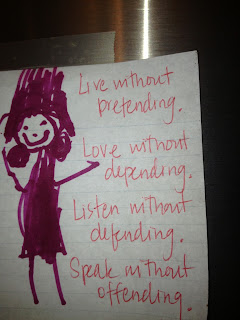 Live without
pretending.
Love without
depending.
Listen without
defending.
Speak without
offending.